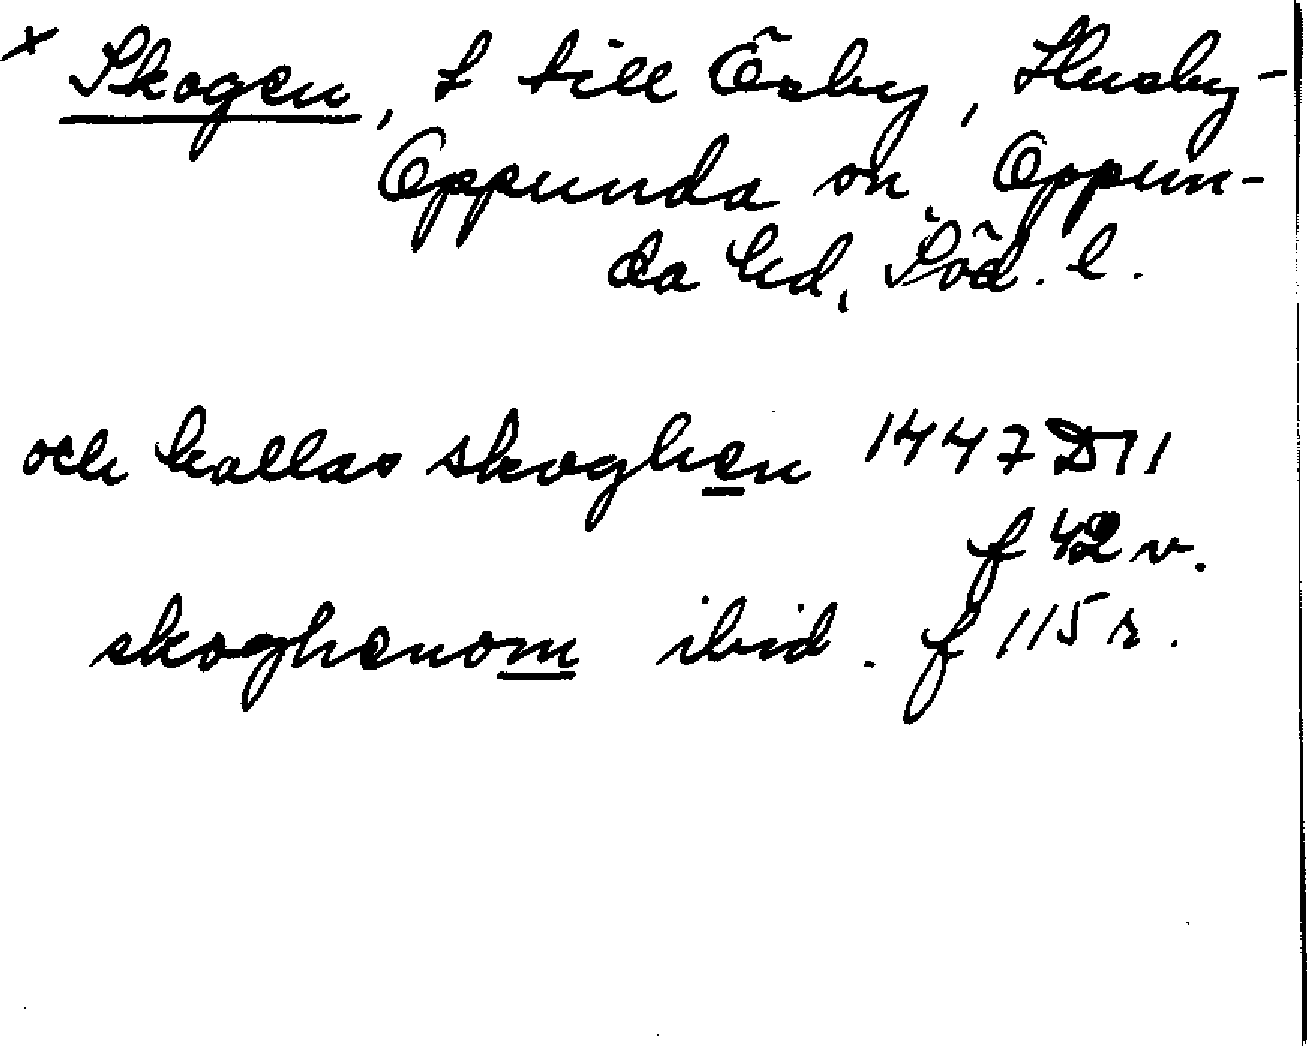 × Skogen, t till Ösby, Husby-
Oppunda sn, Oppun-
da hd, Söd. l.
och kallas skoghen 1447 D 11
f 42 v.
skoghenom ibid. f 115 r.